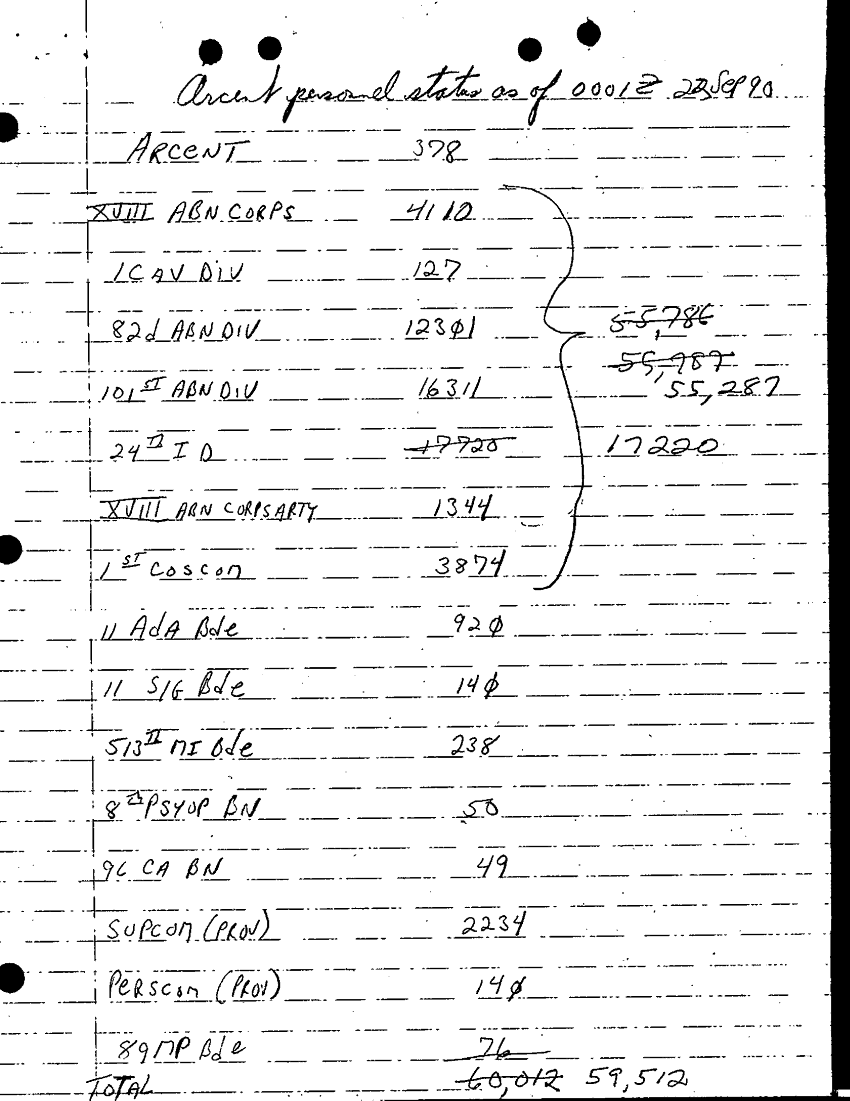 Arcent personnel status as of 0001Z 22 Sep 90
ARCENT 378
XVIII ABN CORPS 4110
1 CAV DIV 127
82d ABN DIV 123Ø1 55,786
55,787
101ST ABN DIV 16311 55,287
24TH ID 17720 17220
XVIII ABN CORPS ARTY 1344
1ST COSCOM 3874
11 AdA Bde 92Ø
11 SIG Bde 14Ø
513TH MI Bde 238
8th PSYOP BN 50
96 CA BN 49
SUPCOM (PROV) 2234
PERSCOM (PROV) 14Ø
89 MP Bde 76
TOTAL 60,012 59,512